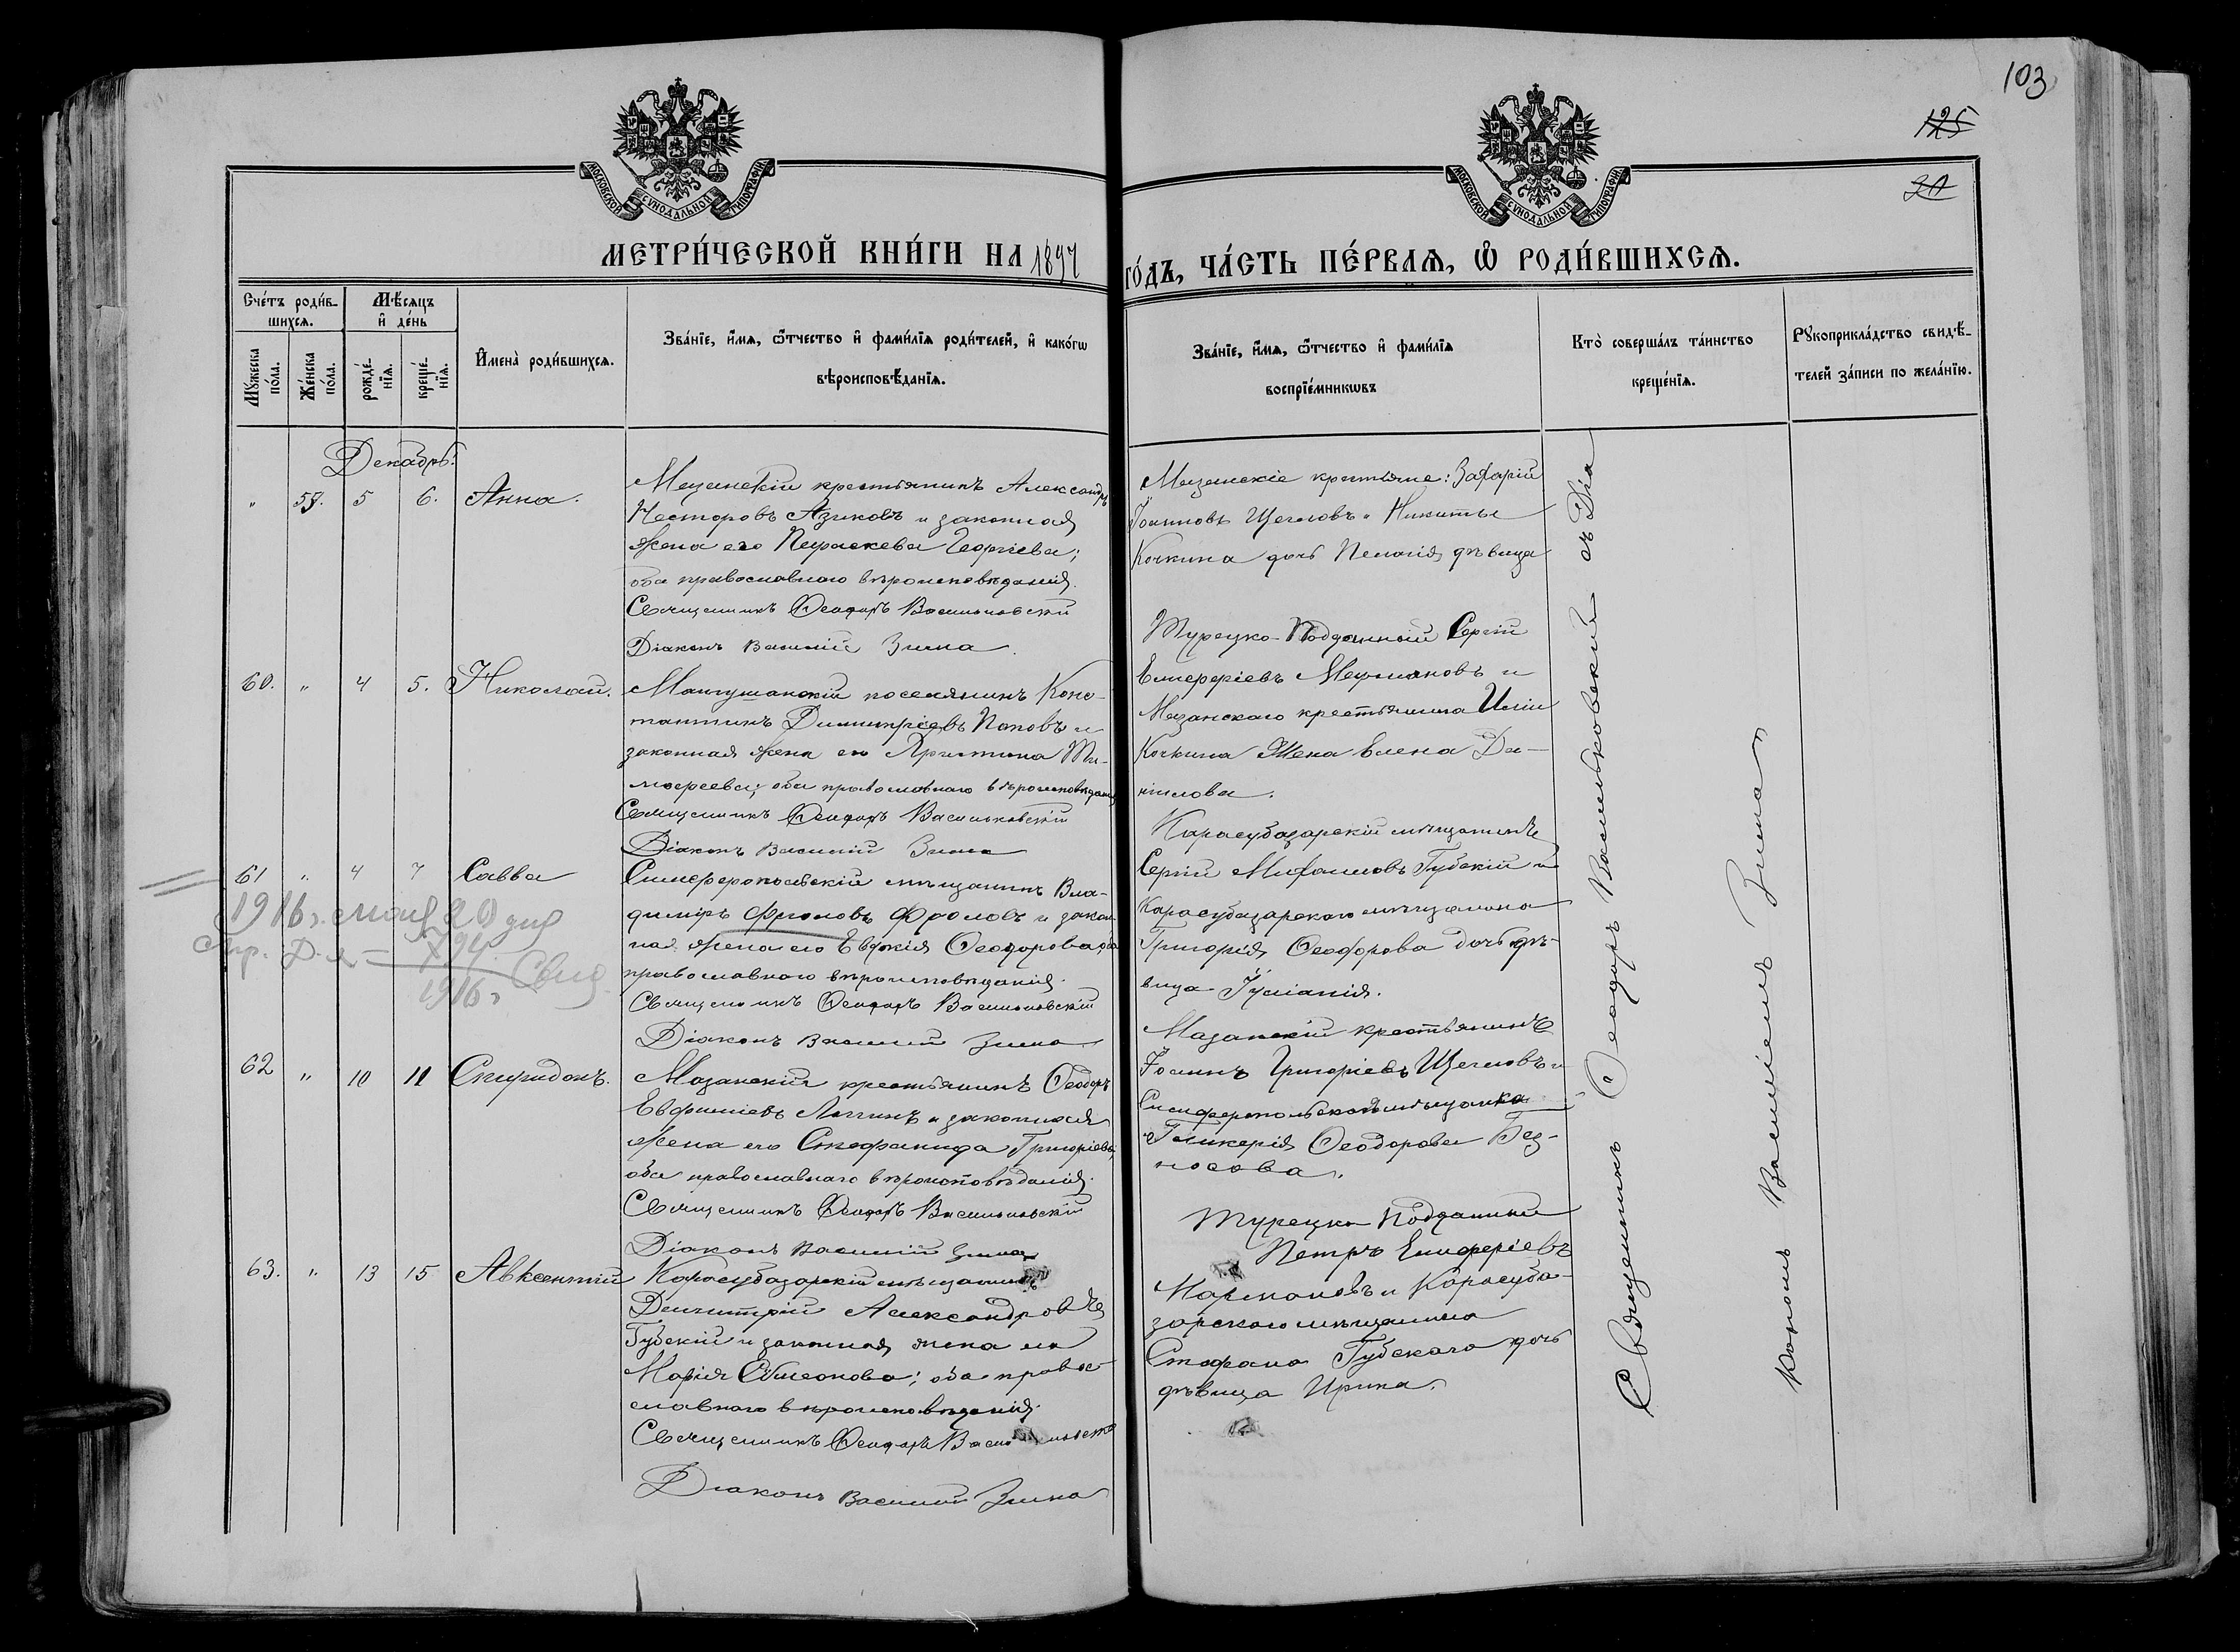 103
125
МОСКОВСКОЙ СѴНОДАЛЬНОЙ ТИПОГРАФІИ
МОСКОВСКОЙ СѴНОДАЛЬНОЙ ТИПОГРАФІИ
МЕТРИ́ЧЕСКОЙ КНИ́ГИ НА 1897
ГО́ДЪ, ЧА́СТЬ ПЕ́РВАѦ, Ѽ РОДИ́ВШИХСѦ.
Сче́тъ роди́в-
шихсѧ.
Мꙋ́жеска
по́ла.
Же́нска
по́ла.
Мѣ́сѧцъ
и҆ де́нь
рожде́-
нїѧ.
креще́-
нїѧ.
И҆мена̀ роди́вшихсѧ.
Зва́нїе, и҆́мѧ, ѻ҆́тчество и҆ фами́лїѧ роди́телей, и҆ како́гѡ
вѣроисповѣ́данїѧ.
Зва́нїе, и҆́мѧ, ѻ҆́тчество и҆ фами́лїѧ
воспрїе́мникѡвъ
Кто̀ соверша́лъ та́инство
креще́нїѧ.
Рꙋкоприкла́дство свидѣ́-
телей за́писи по жела́нїю.
Декабрь.
" 59. 5 6. Анна.
Мазанскій крестьянинъ Александръ
Несторовъ Азиковъ и законная
жена его Параскева Георгіева;
оба православнаго вѣроисповѣданія.
Священникъ Ѳеодоръ Васильковскій
Діаконъ Василій Зима.
Мазанскіе крестьяне: Захарій
Іоанновъ Щегловъ и Никиты
Кочкина дочь Пелагія дѣвица
60. " 4 5. Николай.
Мангушскій поселянинъ Конс-
тантинъ Димитріевъ Поповъ и
законная жена его Христина Ти-
моѳеева; оба православнаго вѣроисповѣданія
Священникъ Ѳеодоръ Васильковскій
Діаконъ Василій Зима
Турецко-Подданный Сергій
Елиферіевъ Мармановъ и
Мазанскаго крестьянина Иліи
Кочкина жена Елена Да-
нилова.
61 " 4 7 Савва
Симферопольскій мѣщанинъ Вла-
диміръ Фроловъ Фроловъ и закон-
ная жена его Евдокія Ѳеодорова, оба
православнаго вѣроисповѣданія.
Священникъ Ѳеодоръ Васильковскій
Діаконъ Василій Зима
Карасубазарскій мѣщанинъ
Сергій Михаиловъ Губскій и
Карасубазарскаго мѣщанина
Григорія Ѳеодорова дочь дѣ-
вица Іуліанія.
1916 г. мая 20 дня
1916 г.
62 " 10 11 Спиридонъ.
Мазанскій крестьянинъ Ѳеодоръ
Евфиміевъ и законная
жена его Стефанида Григоріева;
оба православнаго вѣроисповѣданія.
Священникъ Ѳеодоръ Васильковскій
Діаконъ Василій Зима
Мазанскій крестьянинъ
Іоаннъ Григоріевъ Щегловъ и
Симферопольская мѣщанка
Гликерія Ѳеодорова Без-
носова.
63. " 13 15 Авксентій
Карасубазарскій мѣщанинъ
Димитрій Александровъ
Губскій и законная жена его
Марія Симеонова; оба право-
славнаго вѣроисповѣданія.
Священникъ Ѳеодоръ Васильковскій
Діаконъ Василій Зима
Турецко Подданный
Петръ Елиферіевъ
Мармановъ и Карасуба-
зарскаго мѣщанина
Стефана Губскаго дочь
дѣвица Ирина.
Священникъ Ѳеодоръ Васильковскій съ Діа
кономъ Василіемъ Зимa